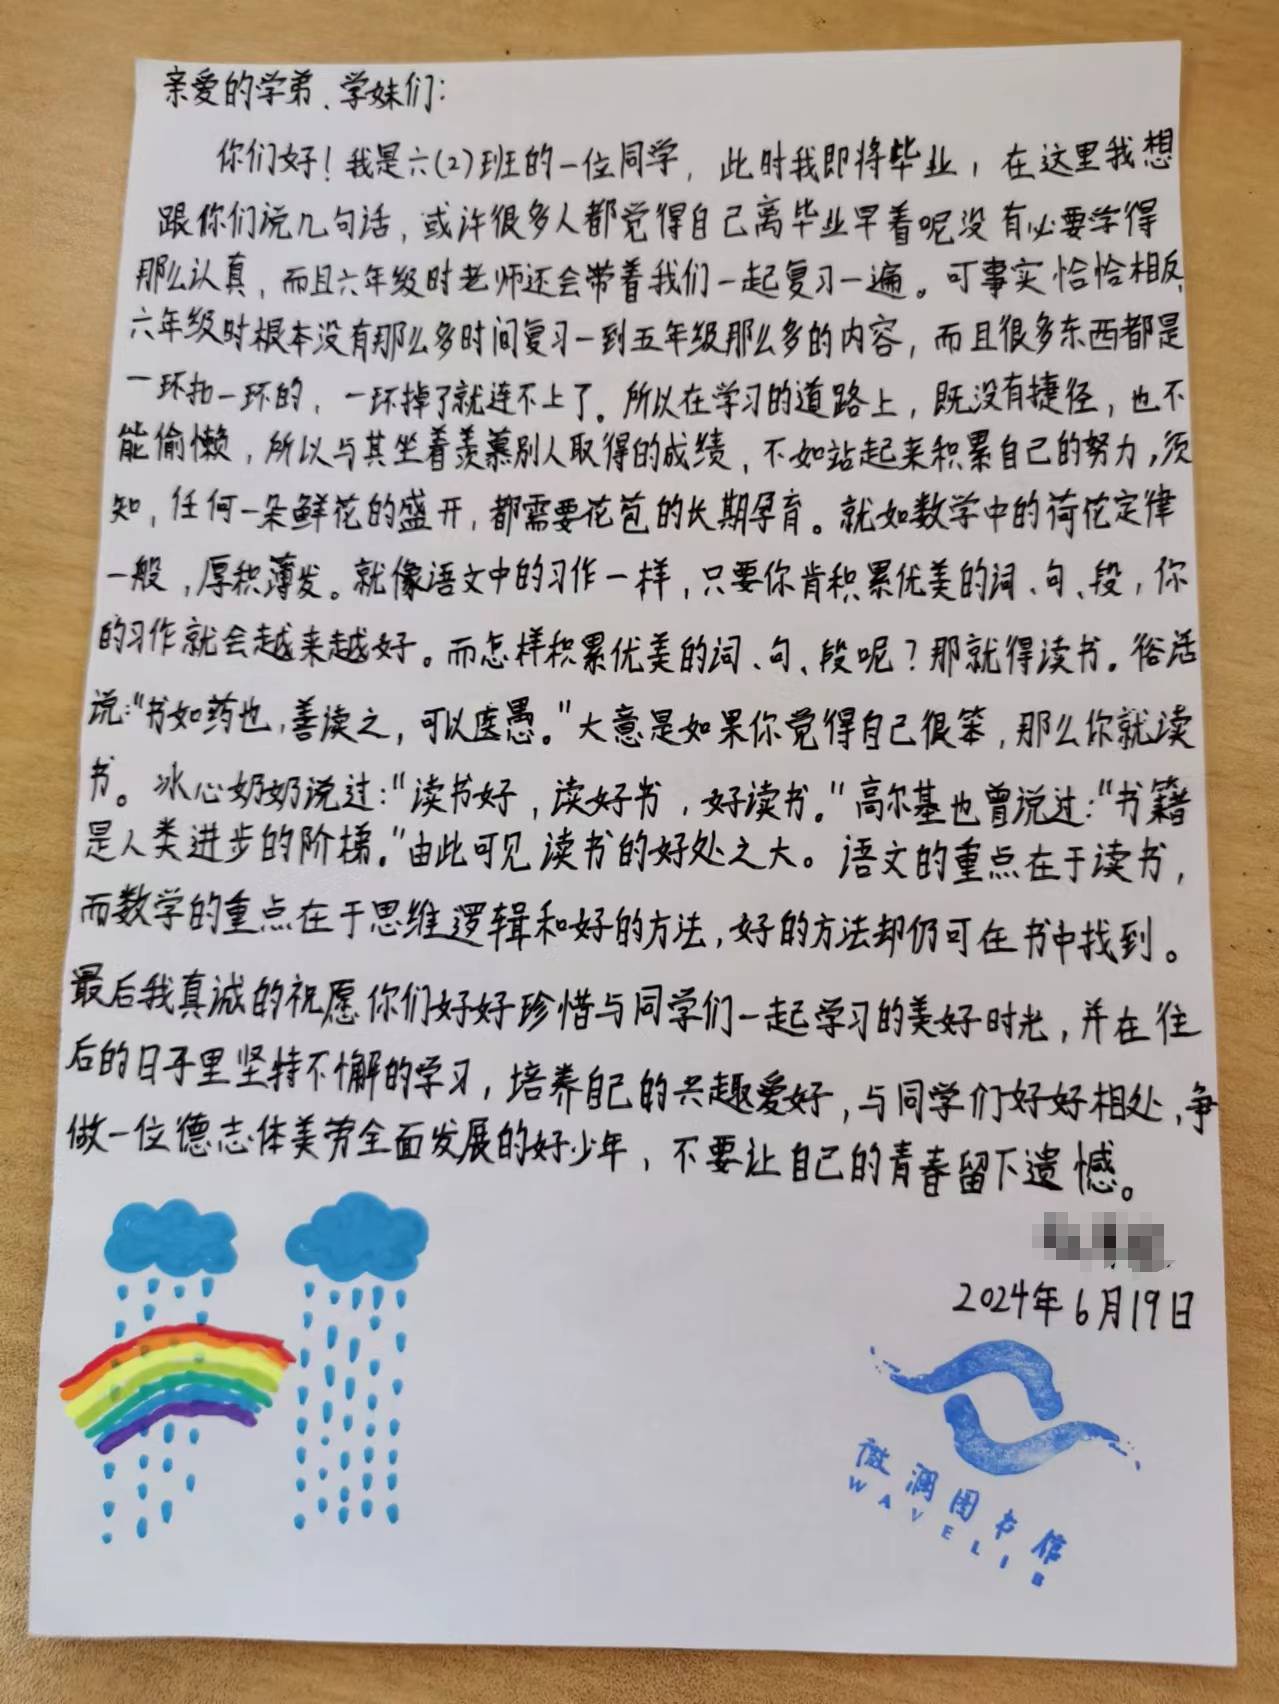 亲爱的学弟、学妹们：
你们好！我是六(2)班的一位同学，此时我即将毕业，在这里我想
跟你们说几句话，或许很多人都觉得自己离毕业早着呢没有必要学得
那么认真，而且六年级时老师还会带着我们一起复习一遍。可事实恰恰相反，
六年级时根本没有那么多时间复习一到五年级那么多的内容，而且很多东西都是
一环扣一环的，一环掉了就连不上了。所以在学习的道路上，既没有捷径，也不
能偷懒，所以与其坐着羡慕别人取得的成绩，不如站起来积累自己的努力，须
知，任何一朵鲜花的盛开，都需要花苞的长期孕育。就如数学中的荷花定律
一般，厚积薄发。就像语文中的习作一样，只要你肯积累优美的词、句、段，你
的习作就会越来越好。而怎样积累优美的词、句、段呢？那就得读书。俗话
说：“书如药也，善读之，可以医愚。”大意是如果你觉得自己很笨，那么你就读
书。冰心奶奶说过：“读书好，读好书，好读书。”高尔基也曾说过：“书籍
是人类进步的阶梯。”由此可见读书的好处之大。语文的重点在于读书，
而数学的重点在于思维逻辑和好的方法，好的方法却仍可在书中找到。
最后我真诚的祝愿你们好好珍惜与同学们一起学习的美好时光，并在往
后的日子里坚持不懈的学习，培养自己的兴趣爱好，与同学们好好相处，争
做一位德志体美劳全面发展的好少年，不要让自己的青春留下遗憾。
2024年6月19日
微澜图书馆
WAVELIB